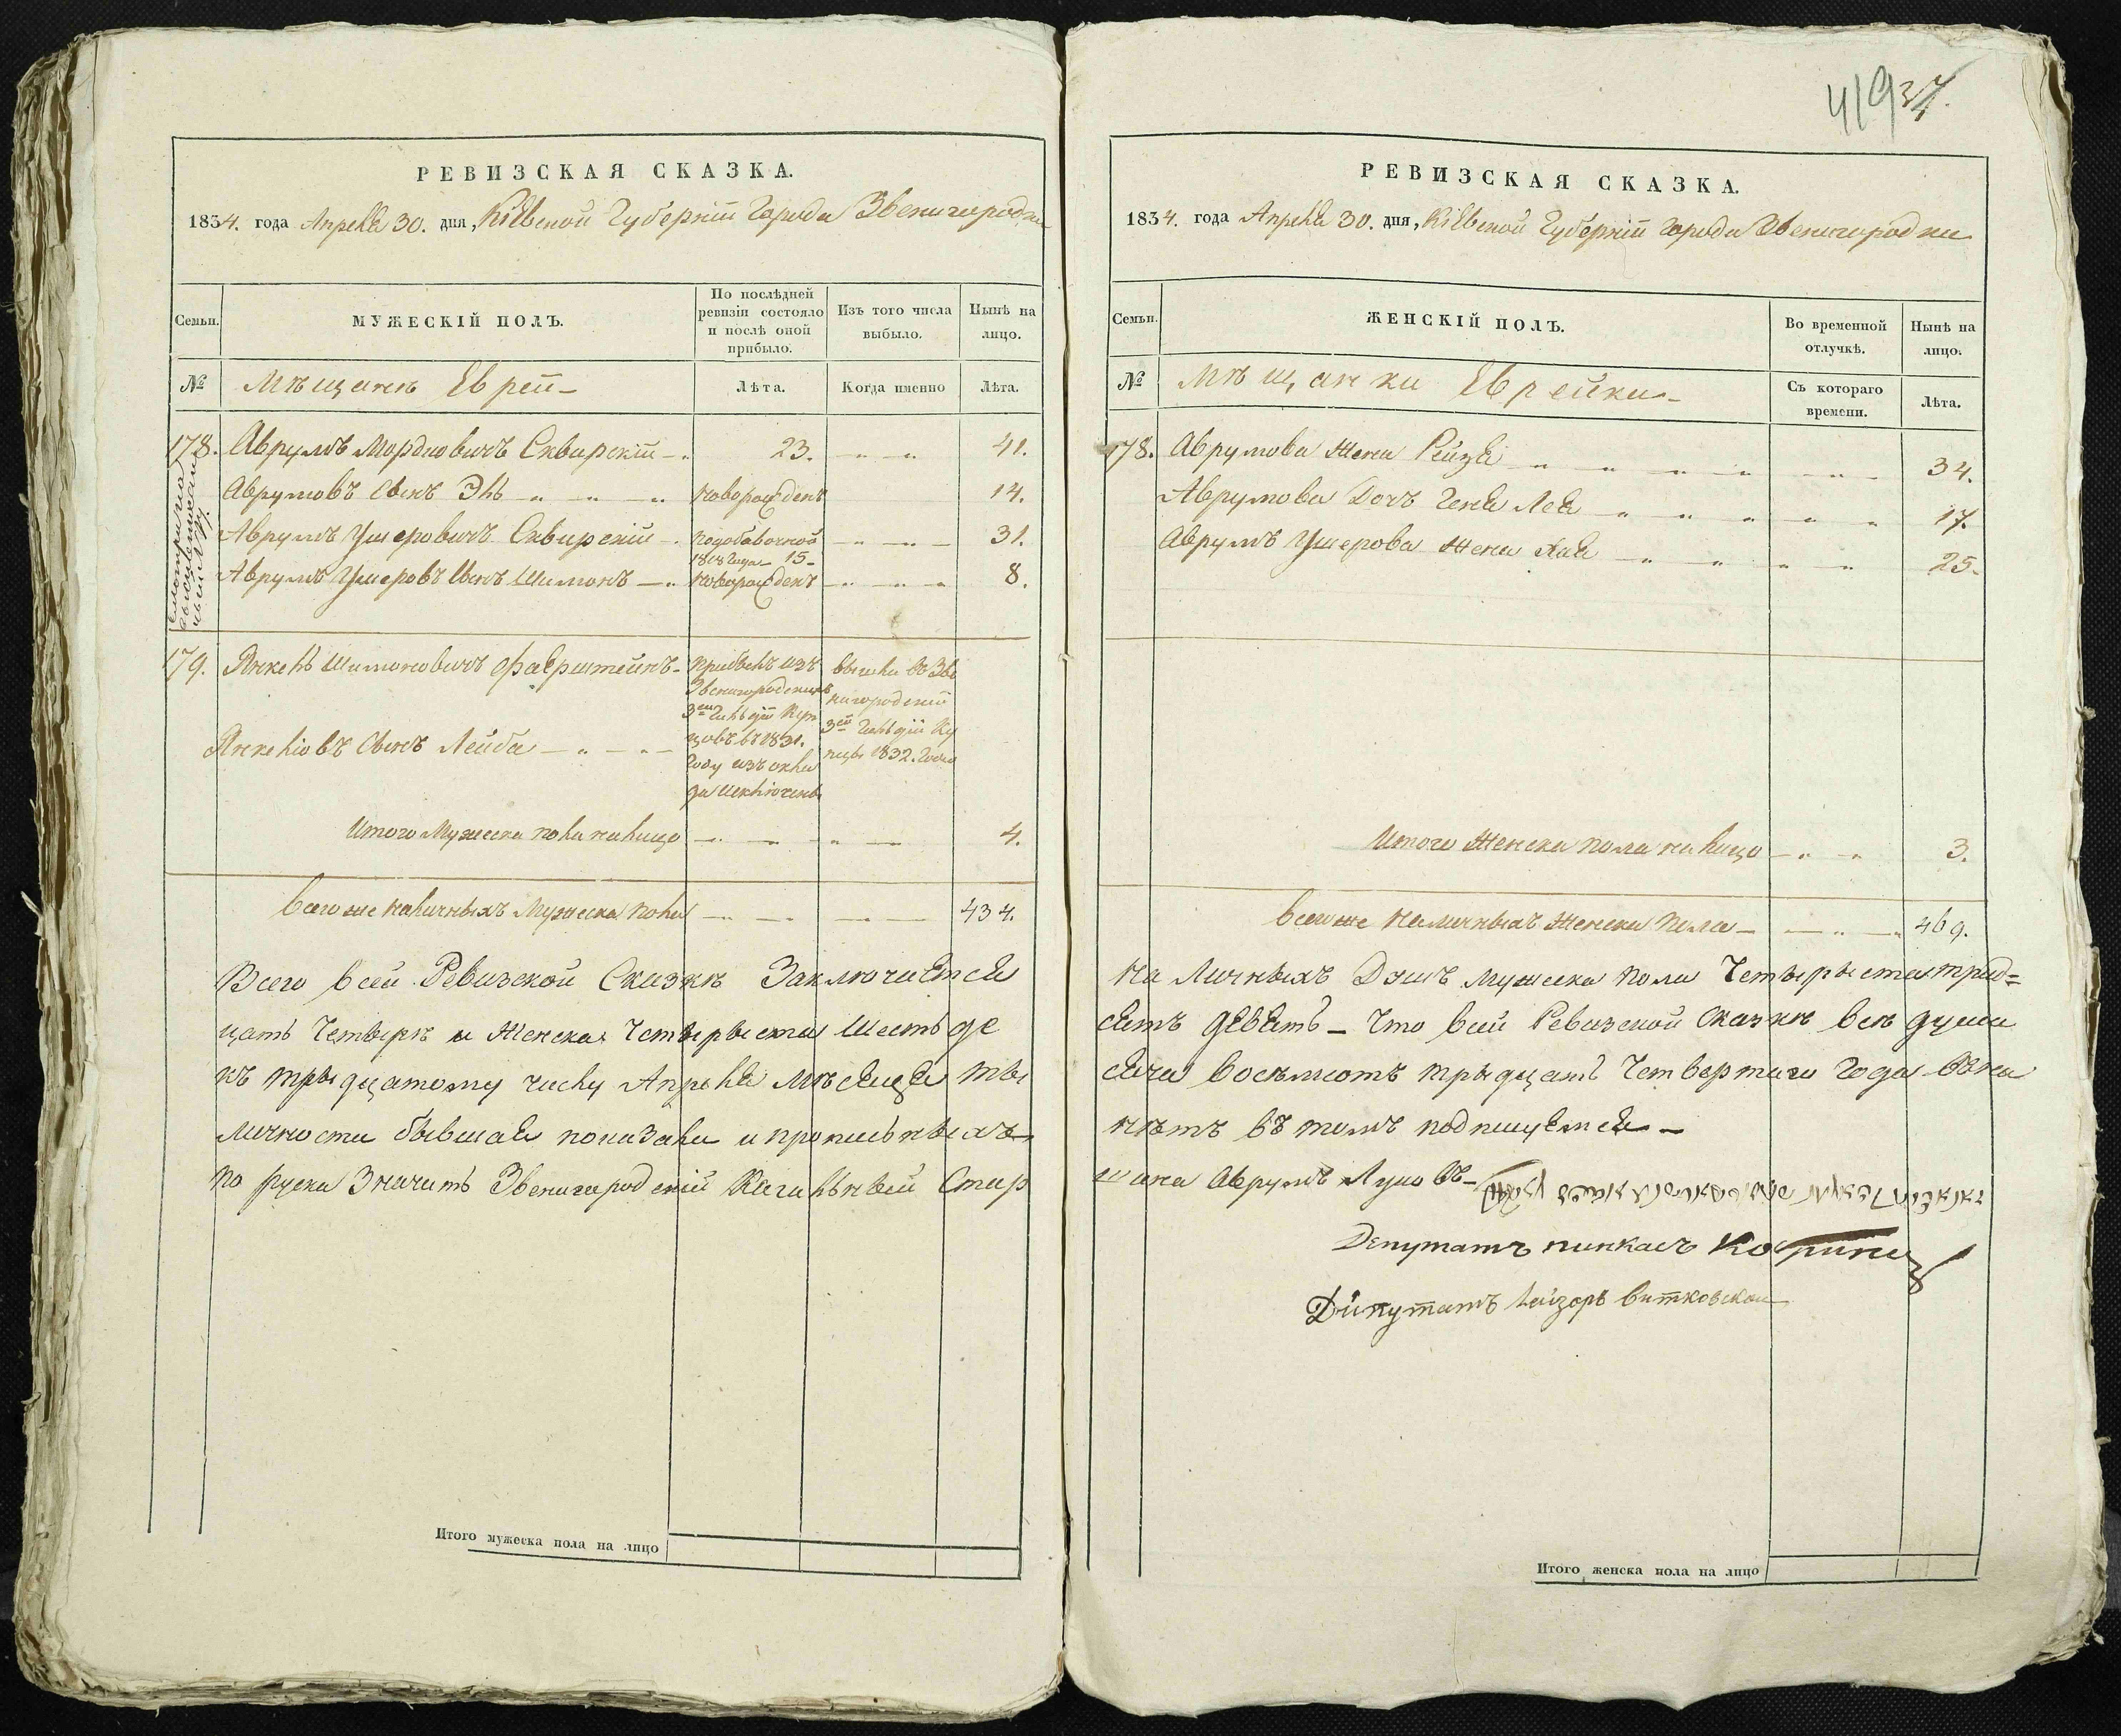 РЕВИЗСКАЯ СКАЗКА.
1834. года Апреля 30. дня, Кіевской Губерніи Города Звенигородки
Семьи.
МУЖЕСКІЙ ПОЛЪ.
По послѣдней ревизіи состояло и послѣ оной прибыло.
Изъ того числа выбыло.
Нынѣ на лицо.
№
Мѣщанѣ Евреи
Лѣта.
Когда именно
Лѣта.
178. Аврумъ Мордковичъ Сквирскій 23. 41.
Аврумовъ Сынъ Эль новорожденъ 14.
Аврумъ Ушеровичъ Сквирскій подобавочной 1818 года 15 31.
Аврумъ Ушеровъ Сынъ Шимонъ новорожденъ 8.
179. Янкель Шимоновичъ Фаерштейнъ
прибылъ изъ
Звенигородскихъ
3ей Гильдіи Куп
цовъ въ 1831.
Году изъ окла
да исключены
вышли въ Зве
нигородскіи
3ей Гильдіи Ку
пцы 1832. Года
Янкеліовъ Сынъ Лейба
Итого Мужеска пола налицо 4.
Всего же наличныхъ Мужеска пола 434.
Всего всей Ревизской Сказкѣ Заключается
цать Четырѣ и Женска Четыриста Шестьде
къ тридцатому числу Апреля мѣсяца ты
личности бывшая показали и прописныхъ
по руски Значитъ Звенигородскій Кагальный Стар
Итого мужеска пола на лицо
41937.
РЕВИЗСКАЯ СКАЗКА.
1834. года Апреля 30. дня, Кіевской Губерніи Города Звенигородки
Семьи.
ЖЕНСКІЙ ПОЛЪ.
Во временной отлучкѣ.
Нынѣ на лицо.
№
Мѣщанки Еврейки
Съ котораго времени.
Лѣта.
178. Аврумова Жена Рейзя 34.
Аврумова Дочь Геня Лея 17.
Аврумъ Ушерова Жена Хая 25.
Итого Женска пола налицо 3.
Всего же наличныхъ Женска пола 469.
наличныхъ Душъ мужеска пола Четыриста трид=
сятъ девять Что всей Ревизской сказкѣ все души
сяча восемьсотъ тридцать Четвертаго Года въ на
нѣтъ въ томъ подпишемся
шина Аврумъ
Депутатъ пинкасъ
Дипутатъ Лейзоръ витковской
Итого женска пола на лицо